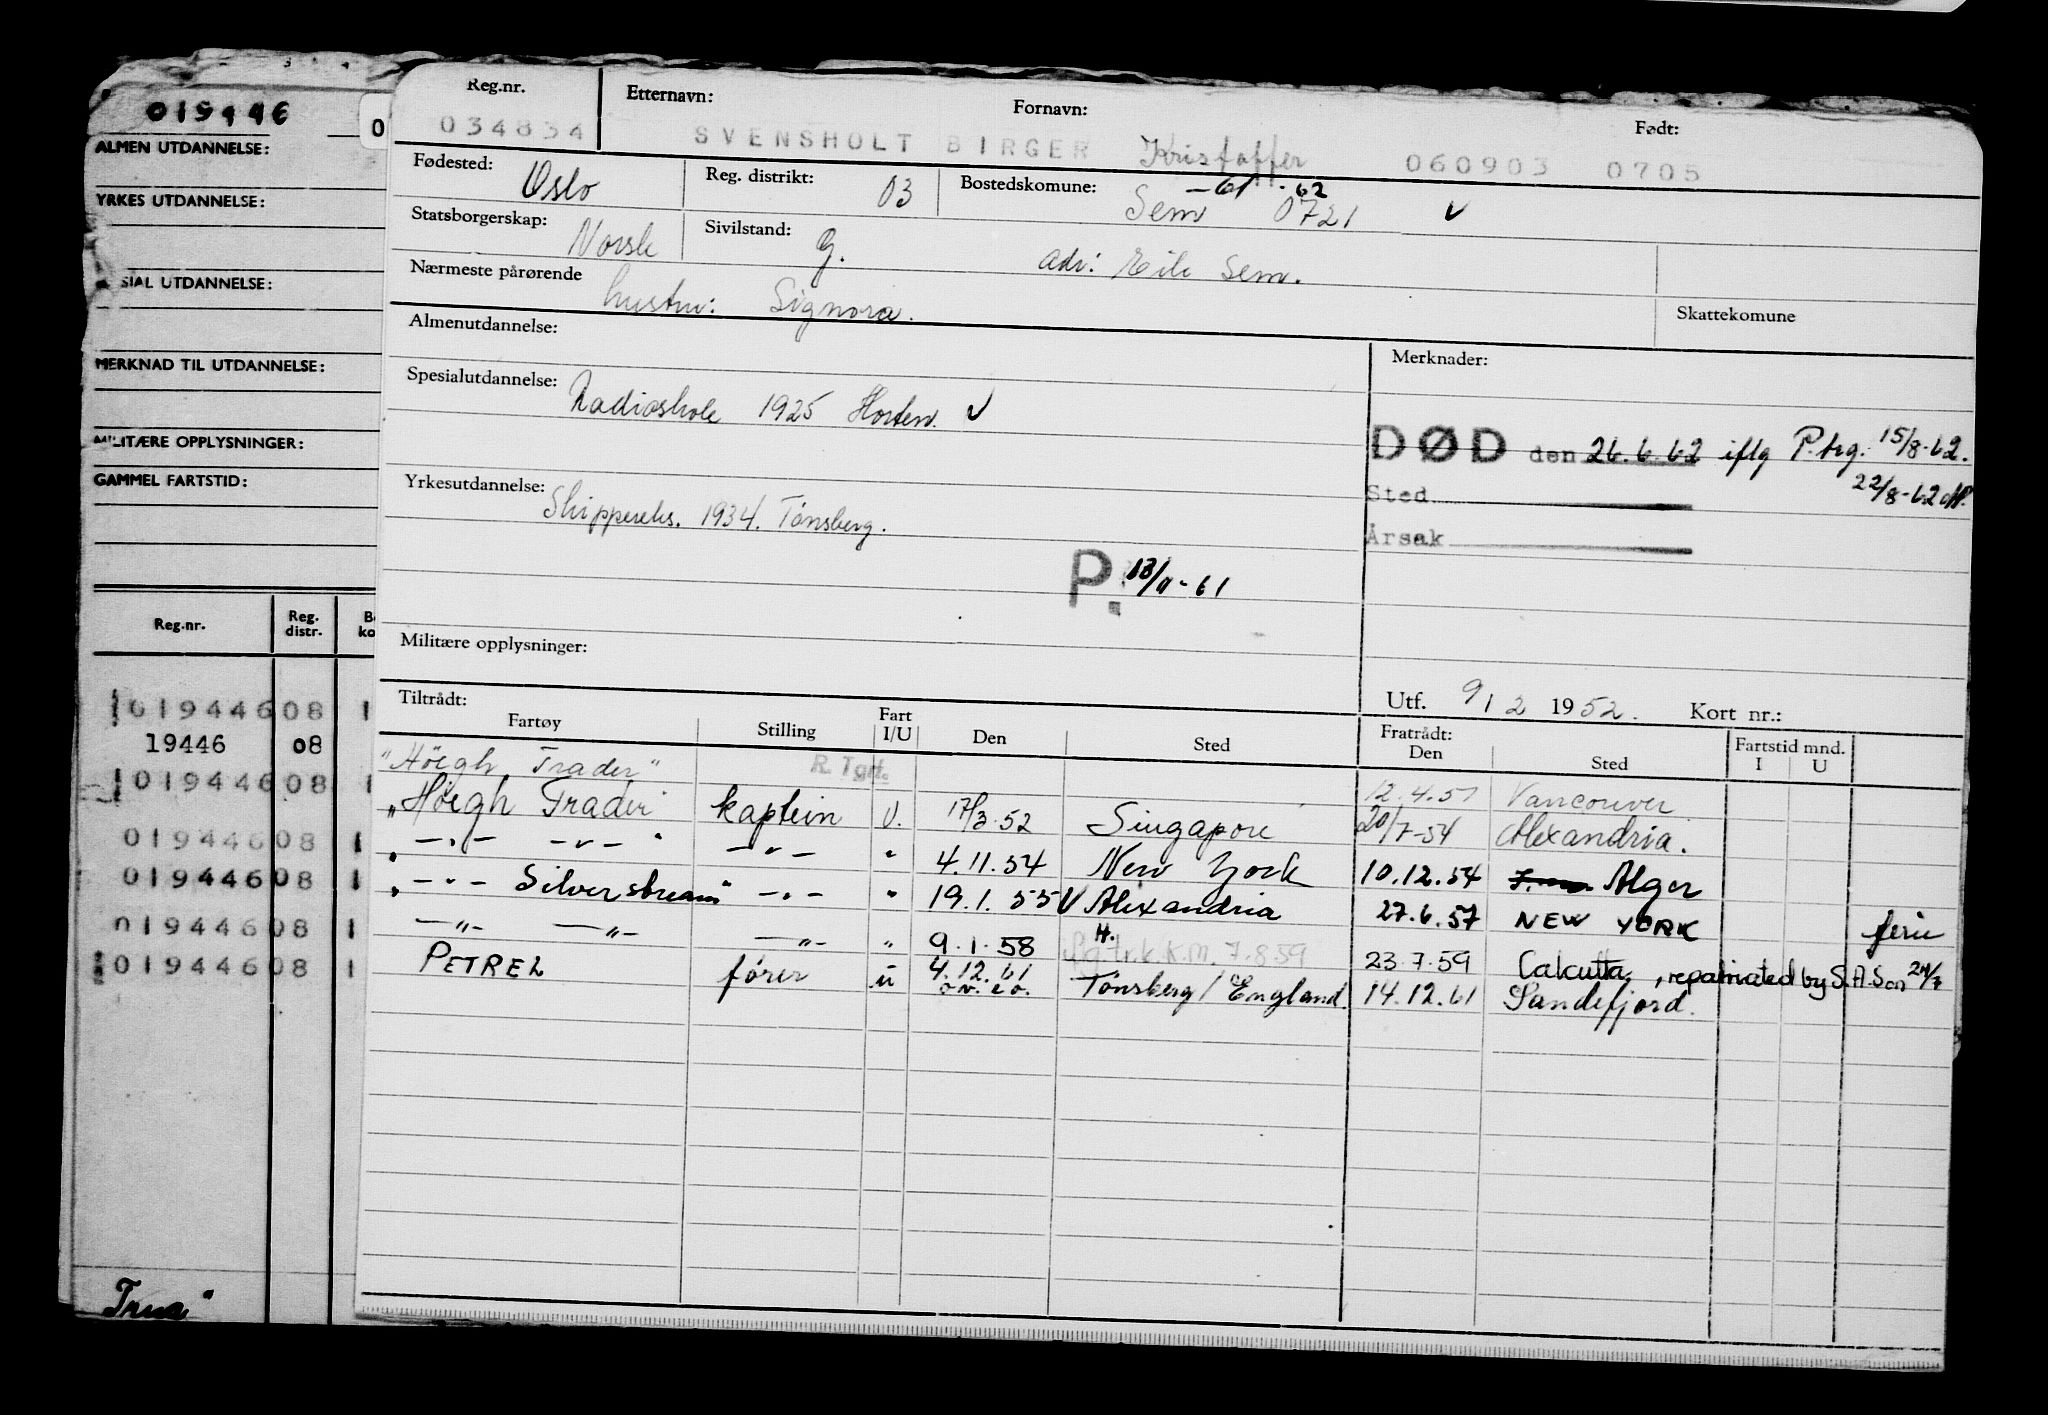 019446
0
ALMEN UTDANNELSE:
YRKES UTDANNELSE:
SIAL UTDANNELSE:
MERKNAD TIL UTDANNELSE:
MILITÆRE OPPLYSNINGER:
GAMMEL FARTSTID:
Reg.nr. Reg. distr.
019446 08 1
19446 08
019446 08 1
019446 08 1
019446 08 1
019446 08 1
019446 08 1
Reg.nr. Etternavn: Fornavn: Født:
034834 SVENSHOLT BIRGER Kristoffer 060903 0705
Fødested: Oslo Reg. distrikt: 03 Bostedskomune: Sem -61 -62 0721 v
Statsborgerskap: Norsk Sivilstand: g. adr: Eik Sem.
Nærmeste pårørende hustru: Signora. Skattekomune
Almenutdannelse: Merknader:
Spesialutdannelse: Radioskole 1925 Horten. v
DØD den 26.6.62 iflg P.trg. 15/8-62.
22/8-62
Sted
Årsak
Yrkesutdannelse: Skippereks. 1934. Tønsberg.
P. 13/11-61
Militære opplysninger:
Utf. 9/2 1952. Kort nr.:
Tiltrådt: Fratrådt:
Fartøy Stilling Fart I/U Den Sted Den Sted Fartstid mnd. I U
"Höegh Trader" R. Tgrf. 12.4.51 Vancouver
"Höegh Trader" kaptein U. 17/3.52 Singapore 20/7-54 Alexandria.
-"- -"- -"- " 4.11.54 New York 10.12.54 Alger
"-"- Silverstream" -"- " 19.1.55 v Alexandria 27.6.57 NEW YORK ferie
-"- -"- -"- " 9.1.58 H. 7.8.59 23.7.59 Calcutta, repatriated by S.A.S on 24/7
PETREL fører u 4.12.61 Tønsberg/England. 14.12.61 Sandefjord.